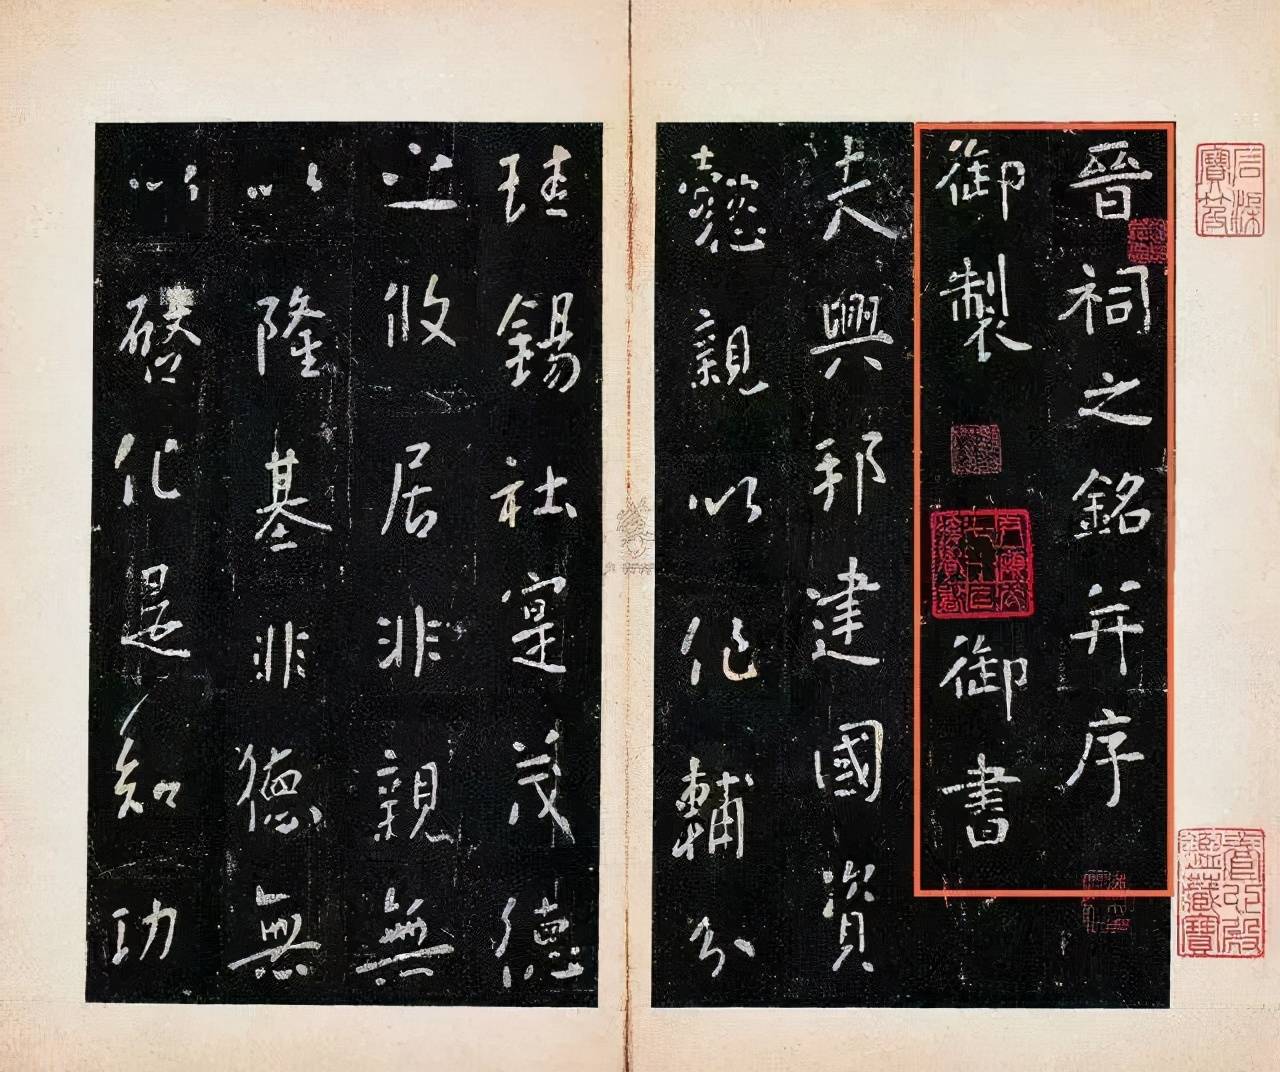 石渠寶笈
養心殿鑑藏寶
晉祠之銘并序
御製
御書
夫興邦建國資
懿親以作輔分
珪錫社寔茂德
之攸居非親無
以隆基非德無
以啓化是知功